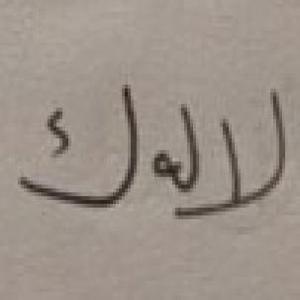 لالوك